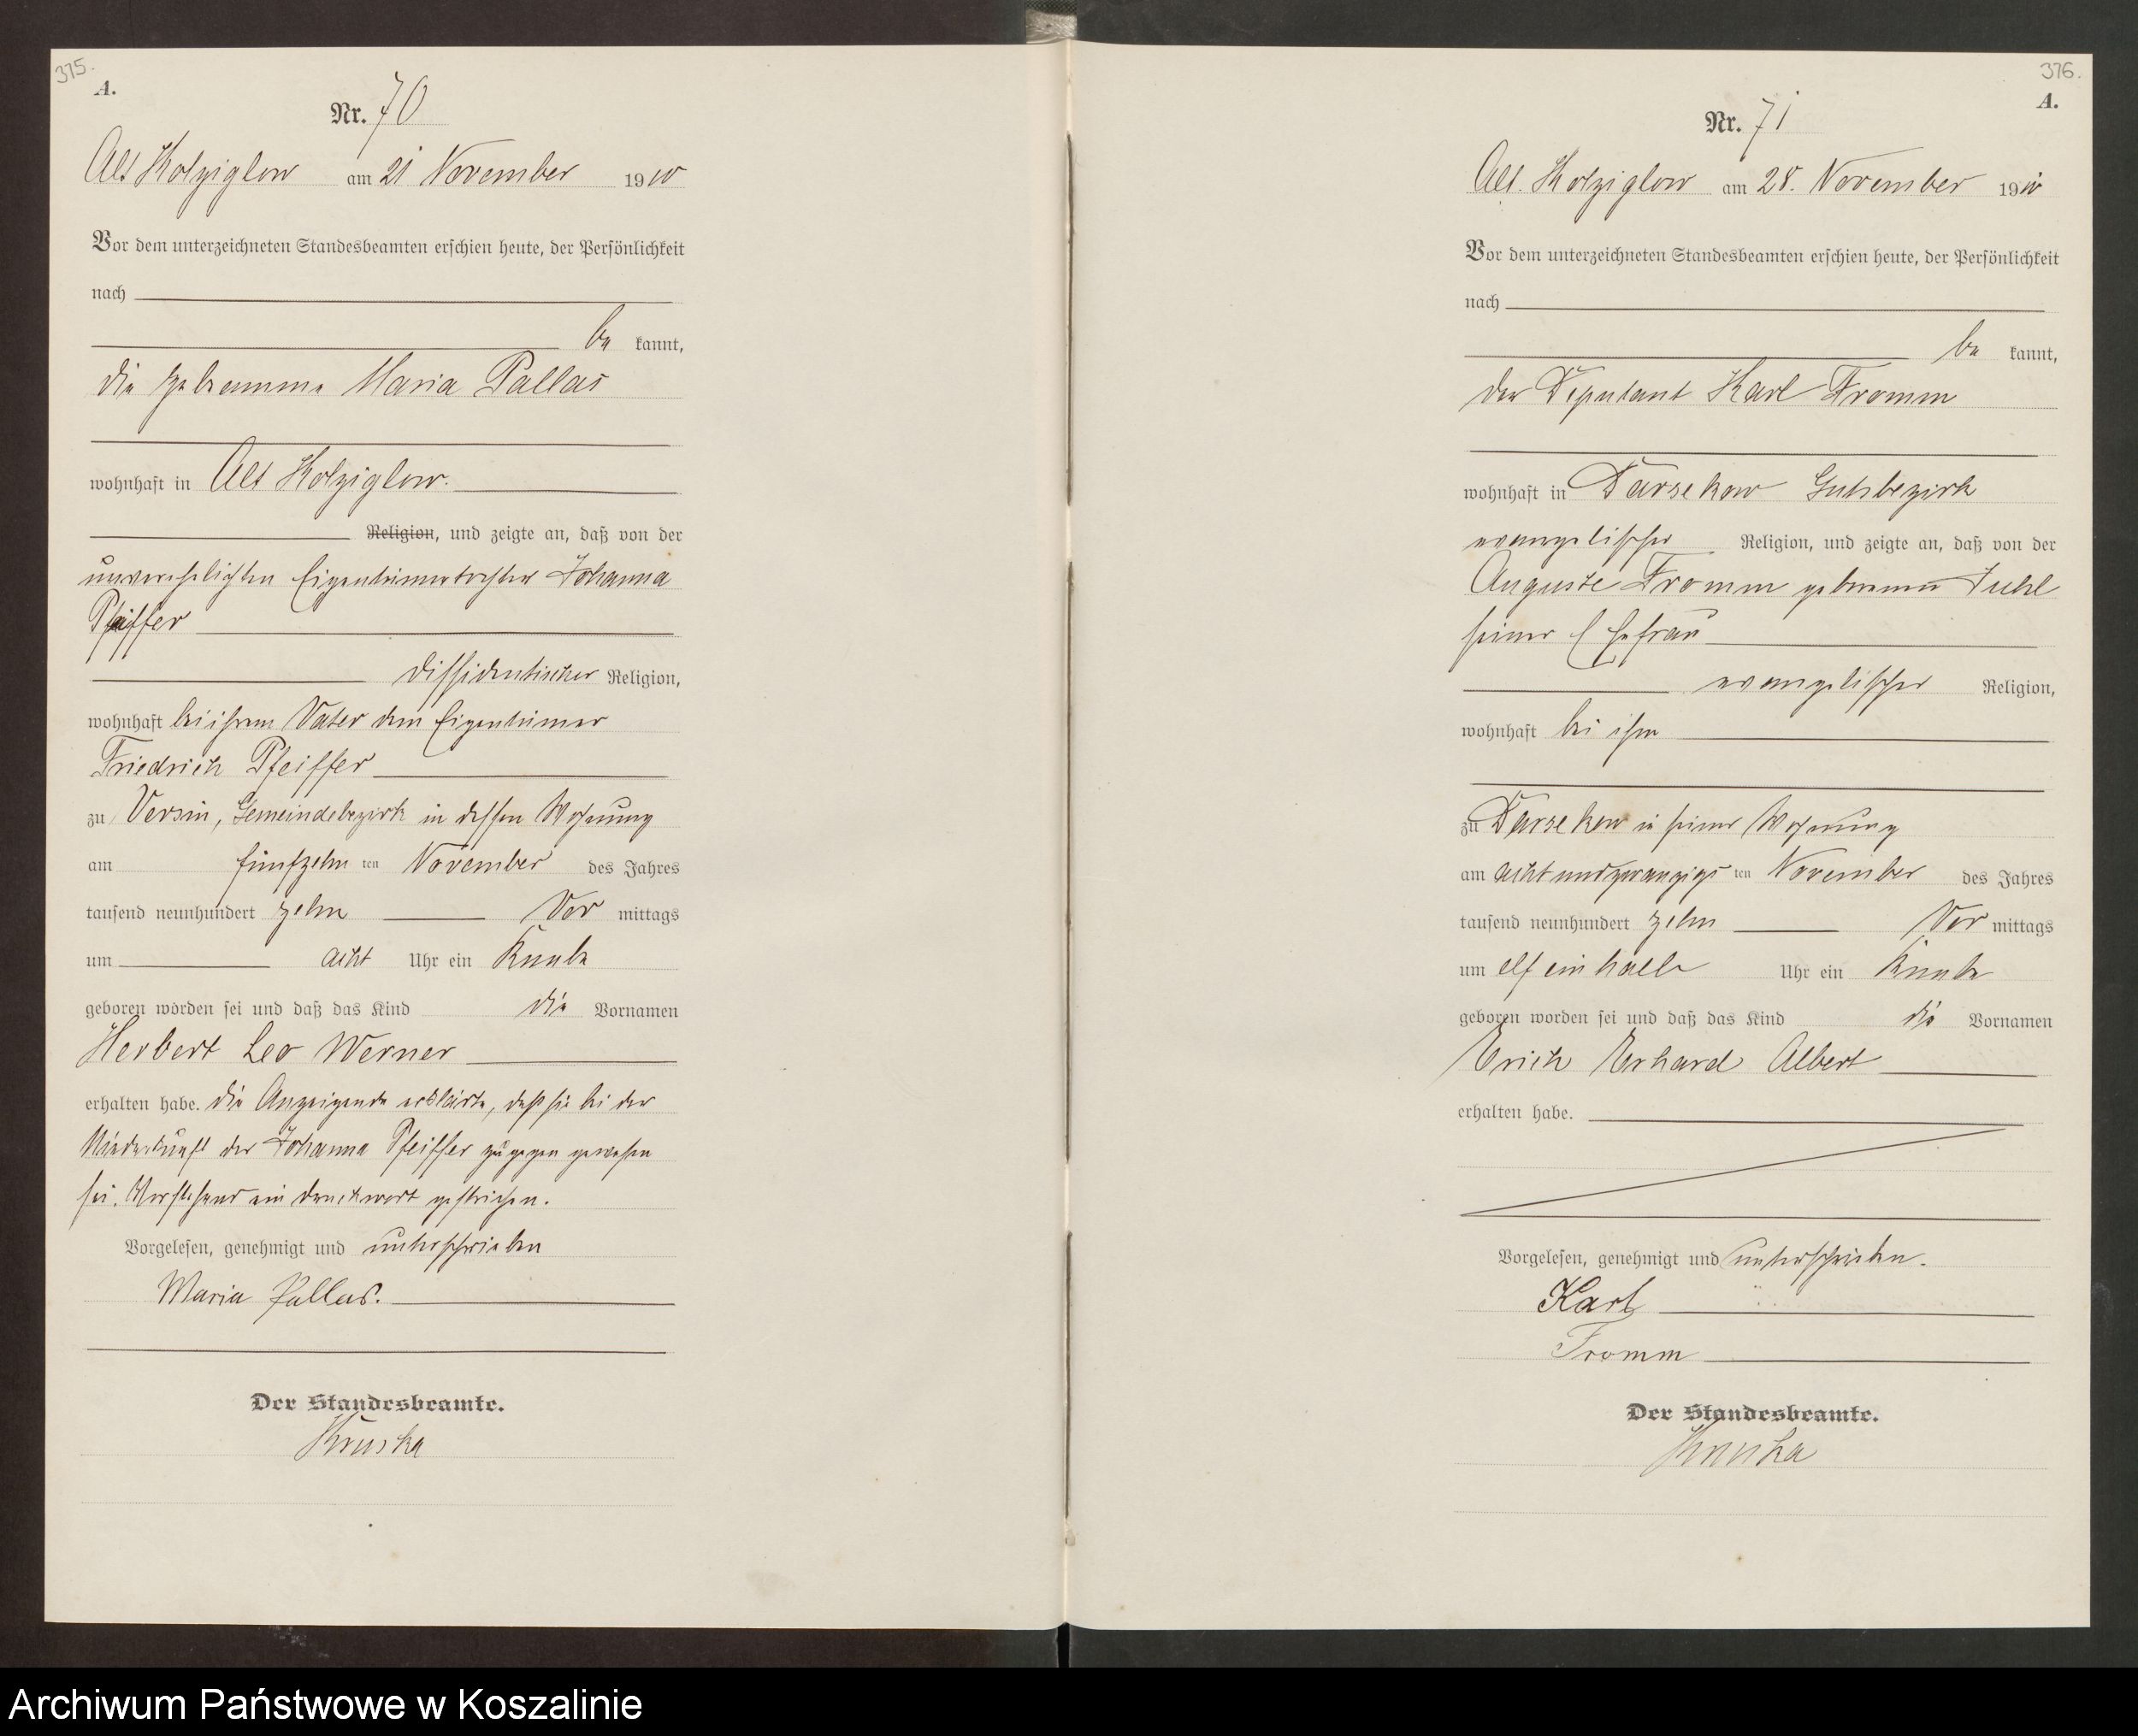 375.
A.
Nr. 70
Alt Kolziglow am 21 November 1910
Vor dem unterzeichneten Standesbeamten erschien heute, der Persönlichkeit
nach
be kannt,
die Hebamme Maria Pallas
wohnhaft in Alt Kolziglow.
Religion, und zeigte an, daß von der
unverehelichten Eigentümertochter Johanna
Pfeiffer
dissidentischer Religion,
wohnhaft bei ihrem Vater dem Eigentümer
Friedrich Pfeiffer
zu Versin, Gemeindebezirk in dessen Wohnung
am fünfzehn ten November des Jahres
tausend neunhundert zehn Vor mittags
um acht Uhr ein Knabe
geboren worden sei und daß das Kind die Vornamen
Herbert Leo Werner
erhalten habe. Die Anzeigende erklärte, daß sie bei der
Niederkunft der Johanna Pfeiffer zugegen gewesen
sei. Vorstehend ein Druckwort gestrichen.
Vorgelesen, genehmigt und unterschrieben
Maria Pallas.
Der Standesbeamte.
Kruska
376.
A.
Nr. 71
Alt. Kolziglow am 28. November 1910
Vor dem unterzeichneten Standesbeamten erschien heute, der Persönlichkeit
nach
be kannt,
der Deputant Karl Fromm
wohnhaft in Darsekow Gutsbezirk
evangelischer Religion, und zeigte an, daß von der
Auguste Fromm geborenen Juhl
seiner Ehefrau
evangelischer Religion,
wohnhaft bei ihm
zu Darsekow in seiner Wohnung
am achtundzwanzigs ten November des Jahres
tausend neunhundert zehn Vor mittags
um elf ein halb Uhr ein Knabe
geboren worden sei und daß das Kind die Vornamen
Erich Erhard Albert
erhalten habe.
Vorgelesen, genehmigt und unterschrieben.
Karl
Fromm
Der Standesbeamte.
Kruska
Archiwum Państwowe w Koszalinie